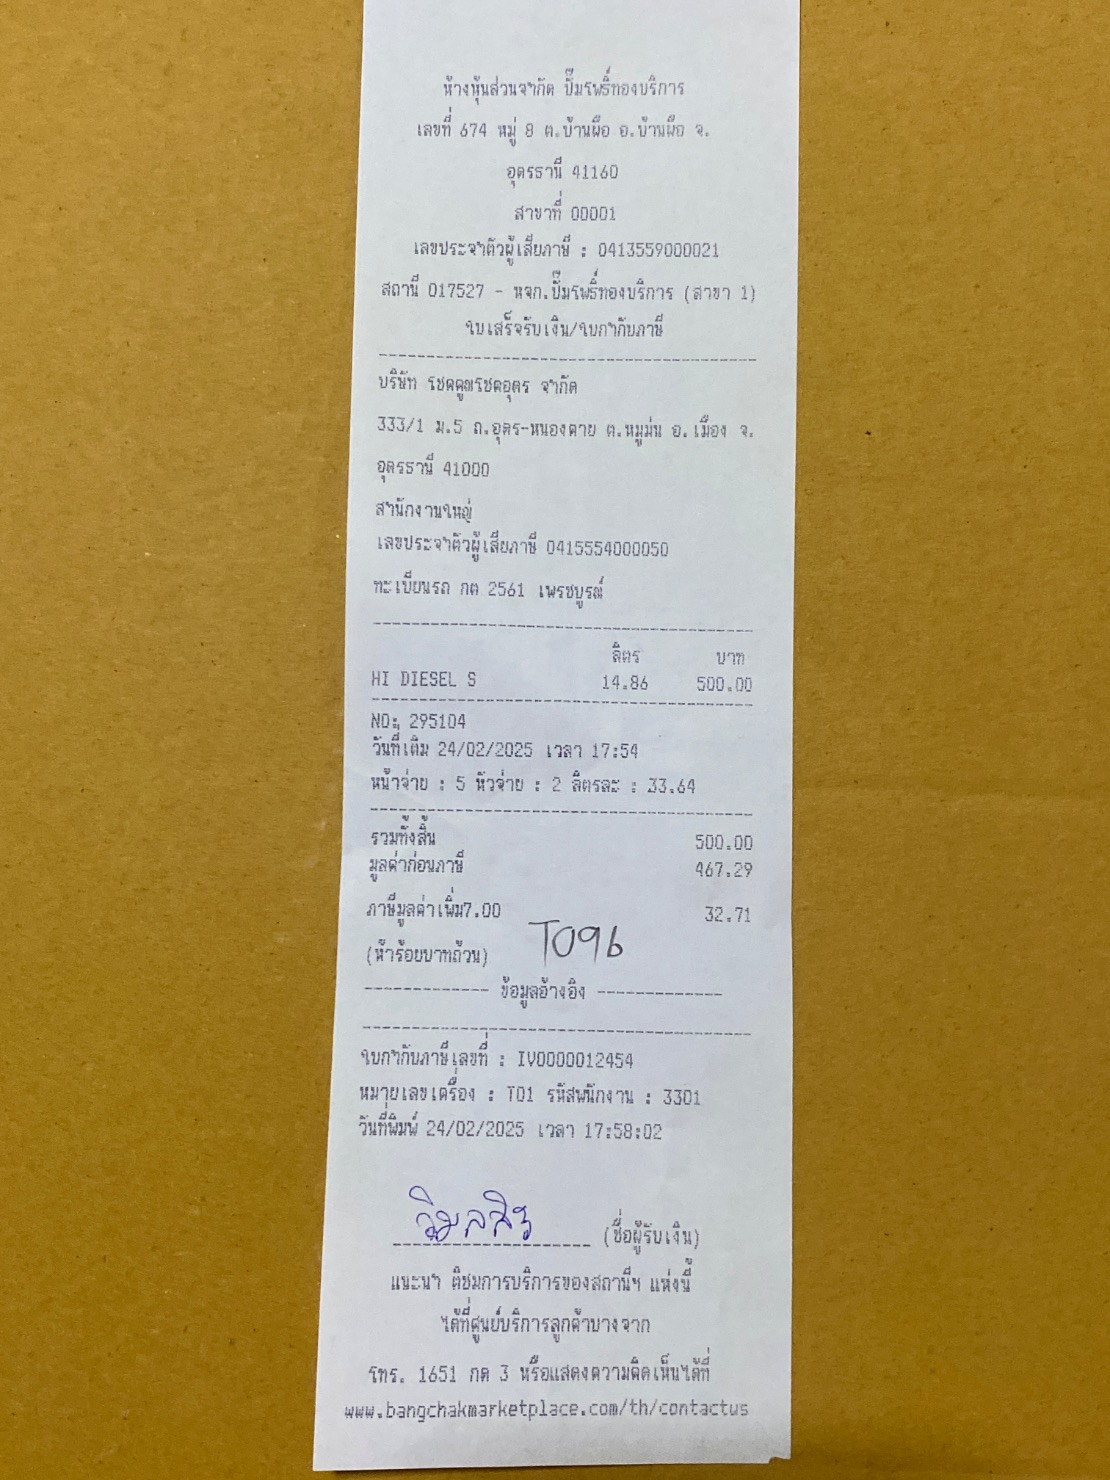 ห้างหุ้นส่วนจำกัด ปั๊มโพธิ์ทองบริการ
เลขที่ 674 หมู่ 8 ต.บ้านผือ อ.บ้านผือ จ.
อุดรธานี 41160
สาขาที่ 00001
เลขประจำตัวผู้เสียภาษี : 0413559000021
สถานี 017527 - หจก.ปั๊มโพธิ์ทองบริการ (สาขา 1)
ใบเสร็จรับเงิน/ใบกำกับภาษี
บริษัท โชคคูณโชคอุดร จำกัด
333/1 ม.5 ถ.อุดร-หนองคาย ต.หมูม่น อ.เมือง จ.
อุดรธานี 41000
สำนักงานใหญ่
เลขประจำตัวผู้เสียภาษี 0415554000050
ทะเบียนรถ กต 2561 เพรชบูรณ์
ลิตร บาท
HI DIESEL S 14.86 500.00
NO: 295104
วันที่เติม 24/02/2025 เวลา 17:54
หน้าจ่าย : 5 หัวจ่าย : 2 ลิตรละ : 33.64
รวมทั้งสิ้น 500.00
มูลค่าก่อนภาษี 467.29
ภาษีมูลค่าเพิ่ม7.00 32.71
T096
(ห้าร้อยบาทถ้วน)
------------- ข้อมูลอ้างอิง -------------
ใบกำกับภาษีเลขที่ : IV0000012454
หมายเลขเครื่อง : T01 รหัสพนักงาน : 3301
วันที่พิมพ์ 24/02/2025 เวลา 17:58:02
(ชื่อผู้รับเงิน)
แนะนำ ติชมการบริการของสถานีฯ แห่งนี้
ได้ที่ศูนย์บริการลูกค้าบางจาก
โทร. 1651 กด 3 หรือแสดงความคิดเห็นได้ที่
www.bangchakmarketplace.com/th/contactus